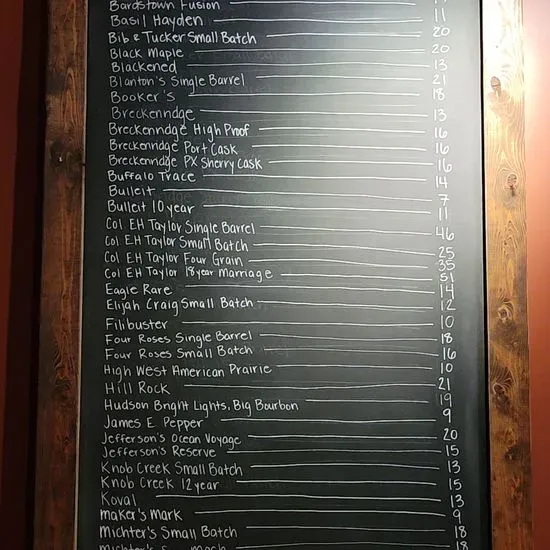 Bardstown Fusion
Basil Hayden 11
Bib & Tucker Small Batch 20
Black Maple 20
Blackened 13
Blanton's Single Barrel 21
Booker's 18
Breckenridge 13
Breckenridge High Proof 16
Breckenridge Port Cask 16
Breckenridge PX Sherry Cask 16
Buffalo Trace 14
Bulleit 7
Bulleit 10 year 11
Col EH Taylor Single Barrel 46
Col EH Taylor Small Batch 25
Col EH Taylor Four Grain 35
Col EH Taylor 18 year Marriage 51
Eagle Rare 14
Elijah Craig Small Batch 12
Filibuster 10
Four Roses Single Barrel 18
Four Roses Small Batch 16
High West American Prairie 10
Hill Rock 21
Hudson Bright Lights, Big Bourbon 19
James E Pepper 9
Jefferson's Ocean Voyage 20
Jefferson's Reserve 15
Knob Creek Small Batch 13
Knob Creek 12 year 15
Koval 13
maker's mark 9
Michter's Small Batch 18
Michter's 18